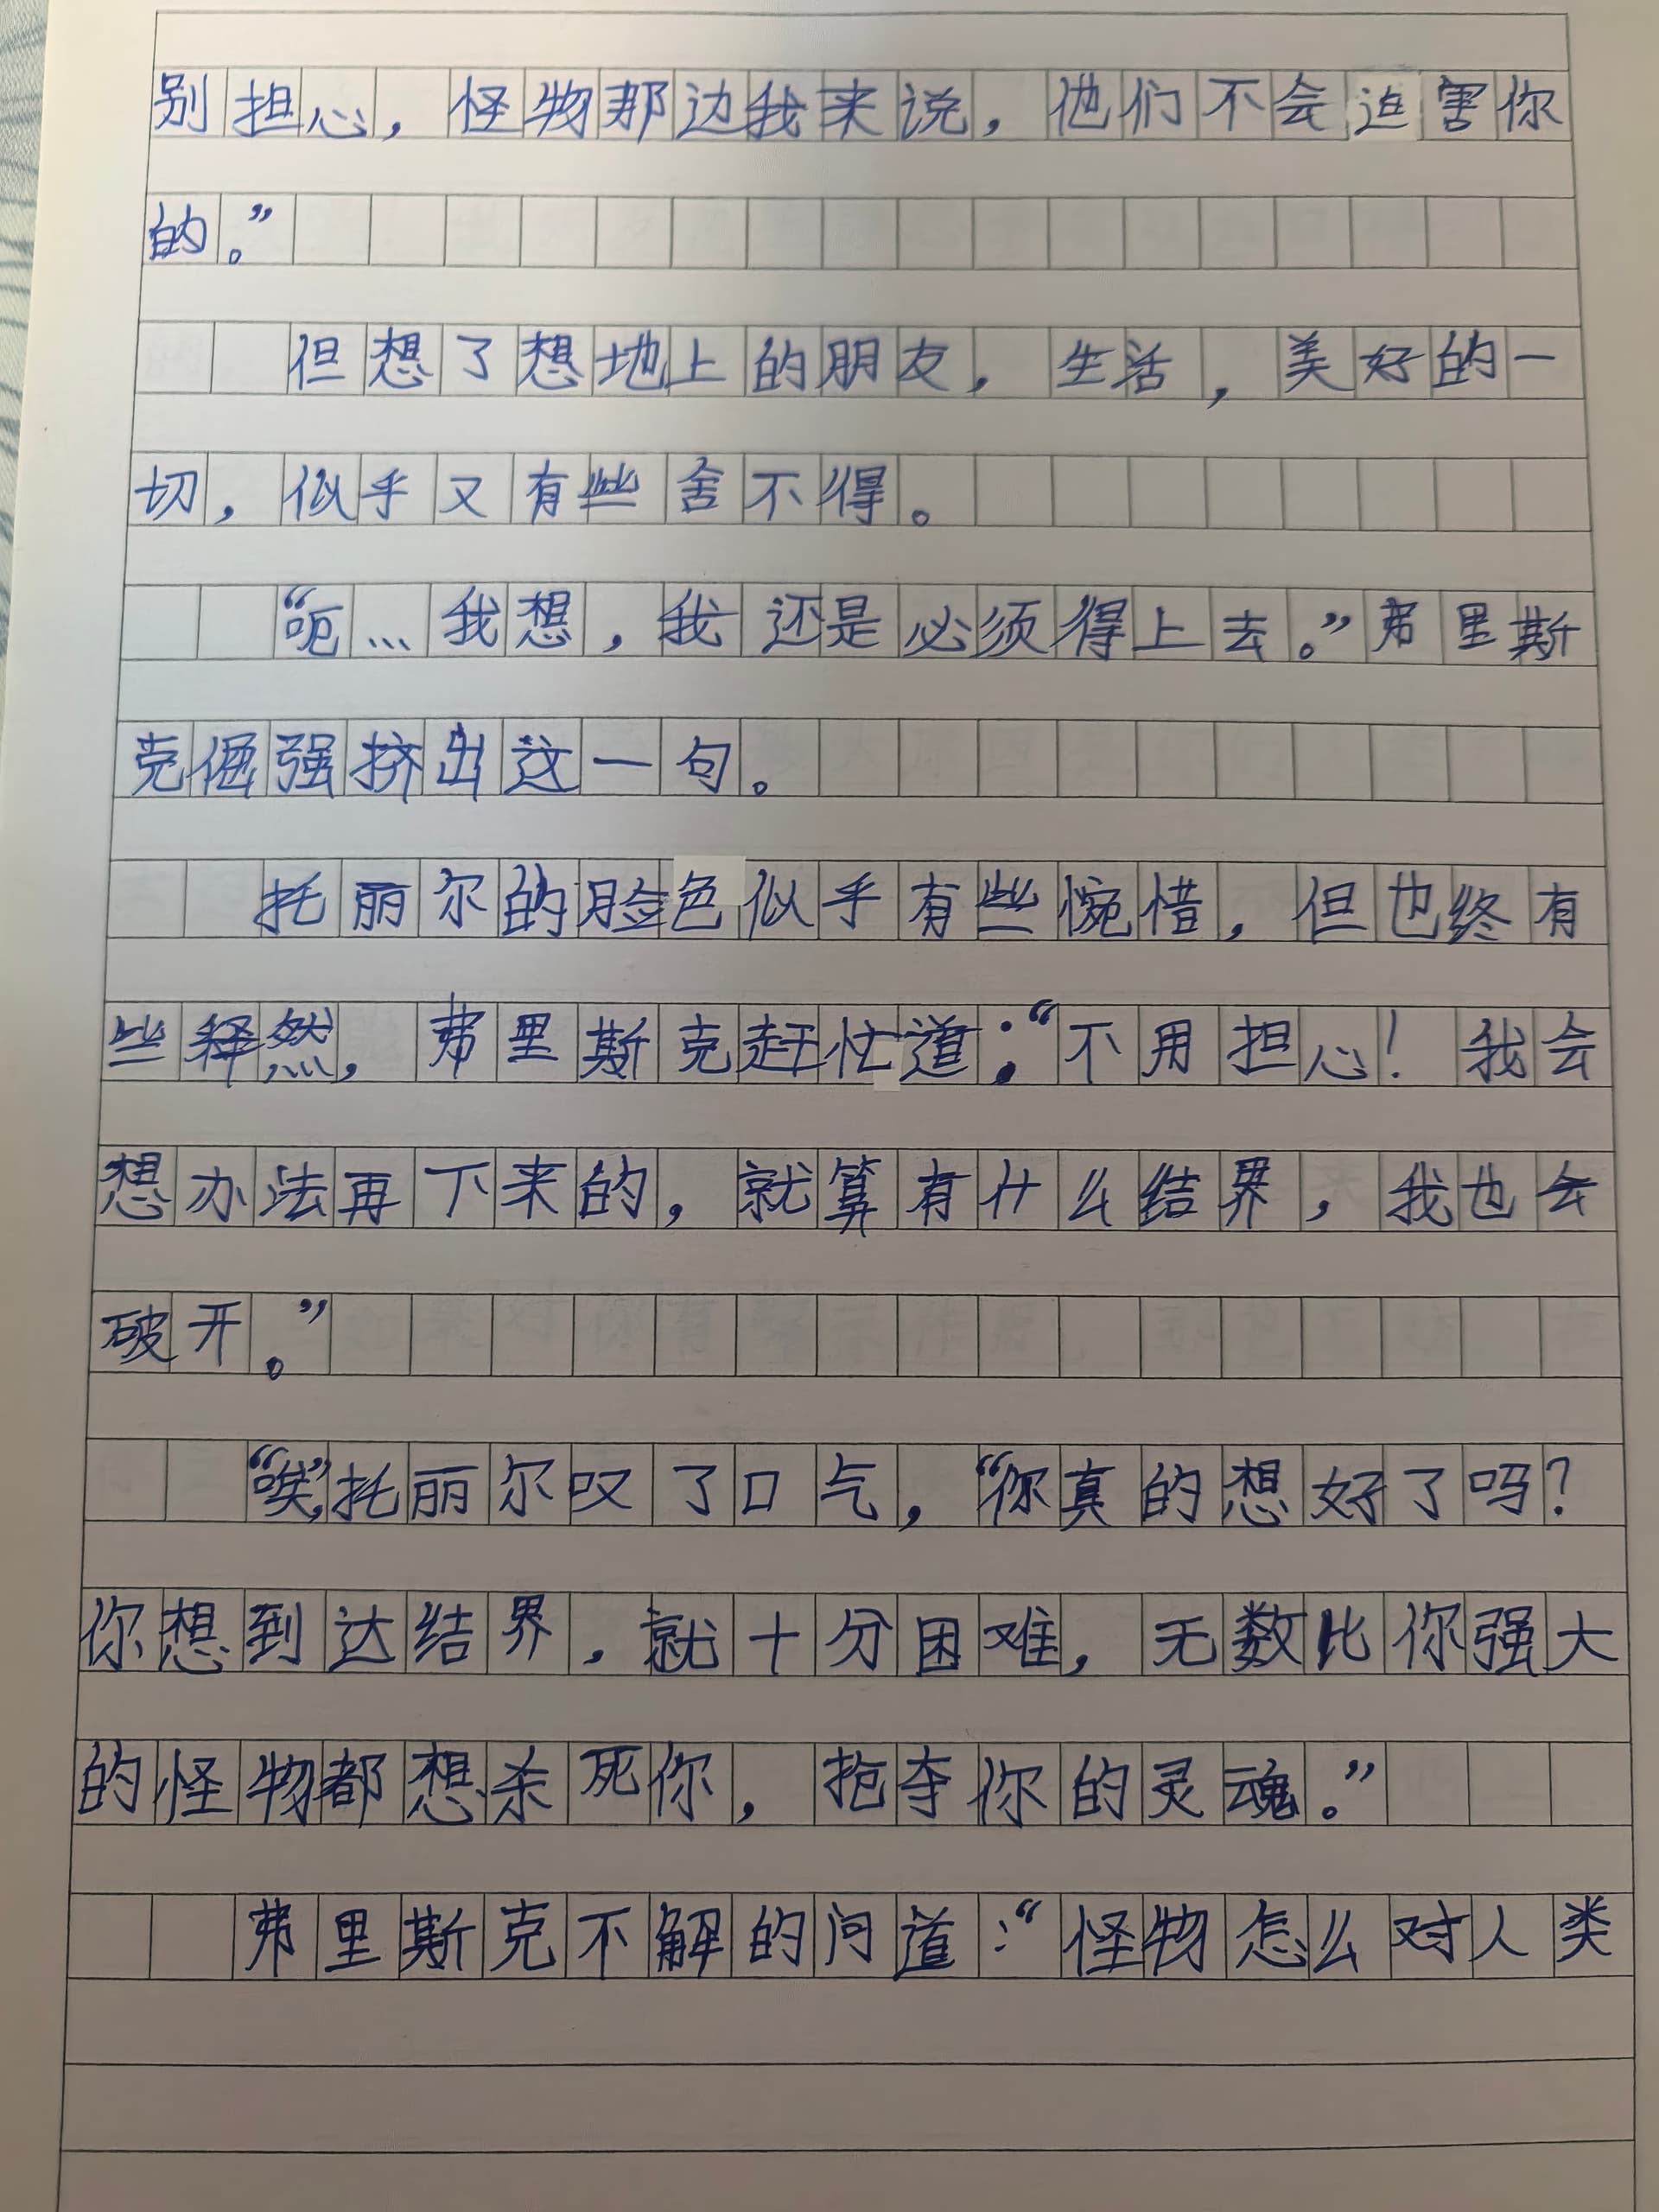 别担心，怪物那边我来说，他们不会迫害你
的。”
但想了想地上的朋友，生活，美好的一
切，似乎又有些舍不得。
“呃…我想，我还是必须得上去。”弗里斯
克倔强挤出这一句。
托丽尔的脸色似乎有些惋惜，但也终有
些释然，弗里斯克赶忙道：“不用担心！我会
想办法再下来的，就算有什么结界，我也会
破开。”
“唉”，托丽尔叹了口气，“你真的想好了吗？
你想到达结界，就十分困难，无数比你强大
的怪物都想杀死你，抢夺你的灵魂。”
弗里斯克不解的问道：“怪物怎么对人类